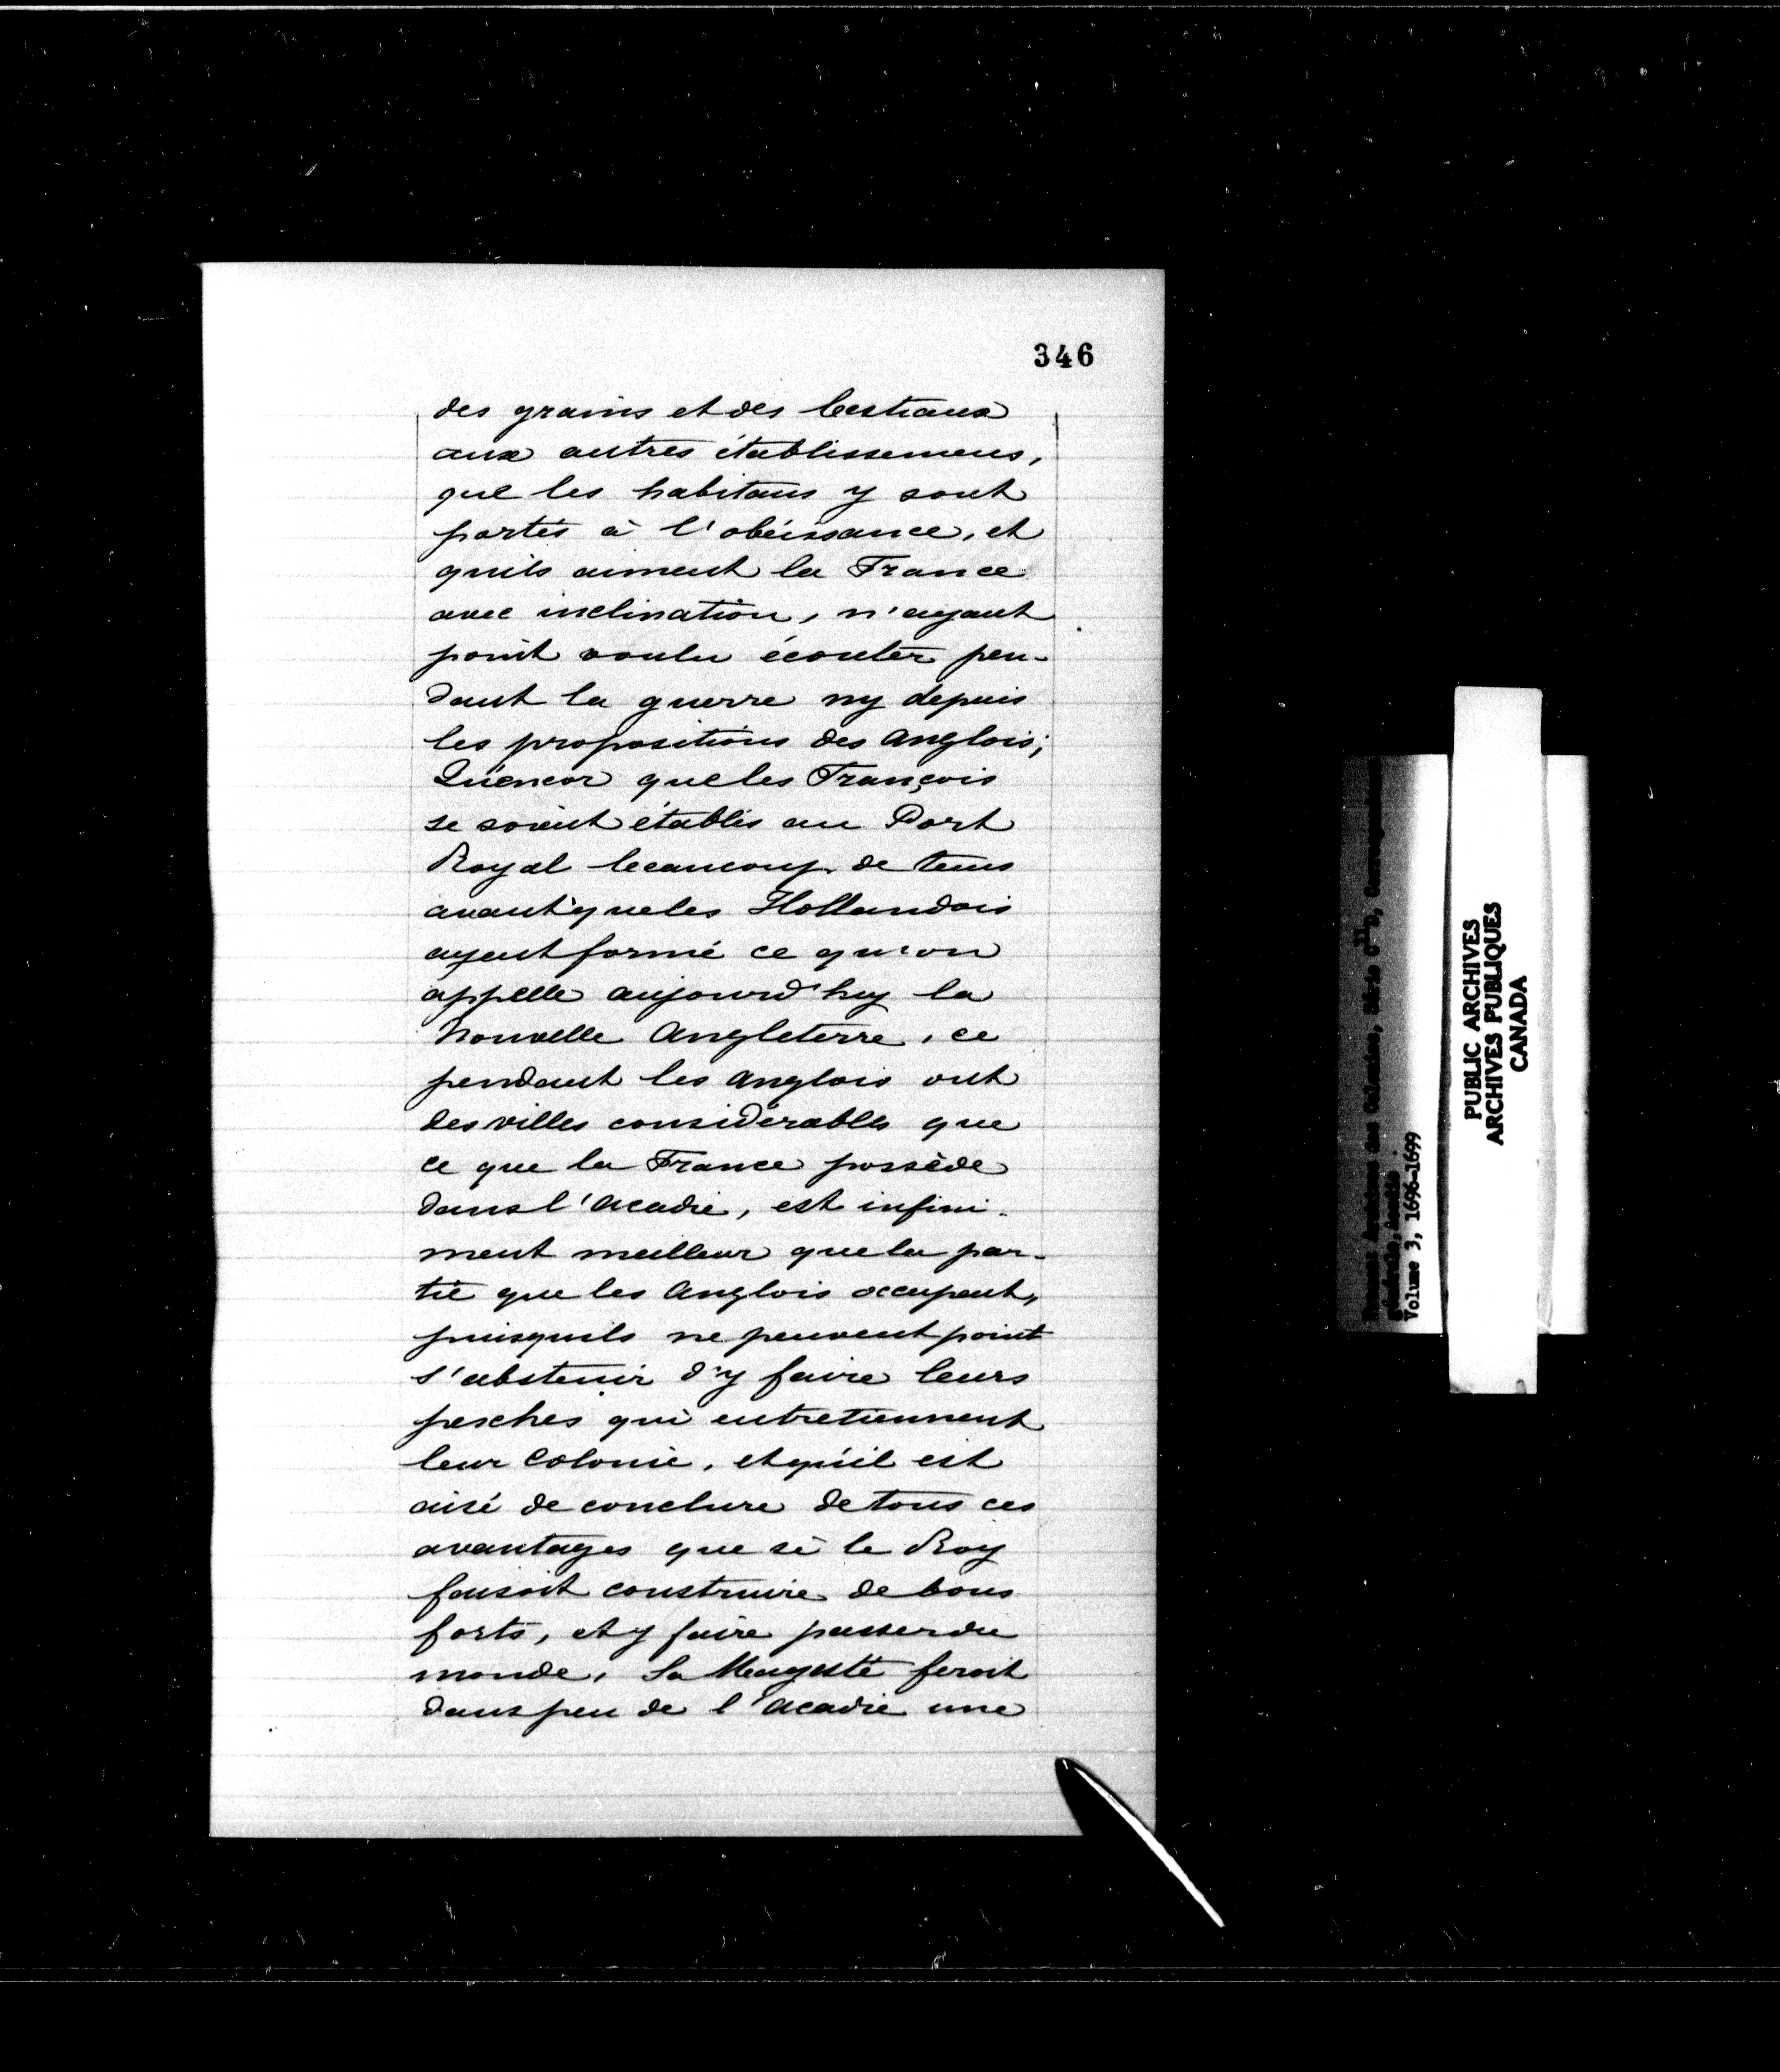 346
des grains et des bestiaux
aux autres établissemens,
que les habitans y sont
portés à l'obéissance, et
quils aiment la France
avec inclination, n'ayant
point voulu écouter pen-
dant la guerre ny depuis
les propositions des Anglois;
Qu'encor que les François
se soient établis au Port
Royal beaucoup de tems
avant que les Hollandois
ayent formé ce qu'on
appelle aujourd'huy la
Nouvelle Angleterre, ce
pendant les Anglois ont
des villes considérables que
ce que la France possède
dans l'Acadie, est infini-
ment meilleur que la par-
tie que les Anglois occupent,
puisquils ne peuvent point
s'abstenir d'y faire leurs
pesches qui entretiennent
leur Colonie, et qu'il est
aisé de conclure de tous ces
avantages que si le Roy
faisoit construire de bons
forts, et y faire passer du
monde, Sa Majesté feroit
dans peu de l'Acadie une
PUBLIC ARCHIVES
ARCHIVES PUBLIQUES
CANADA
Volume 3, 1696-1699